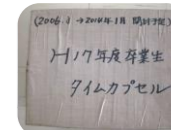 (2006.) →2014年1月 開封予定)
H17年度卒業生
タイムカプセル